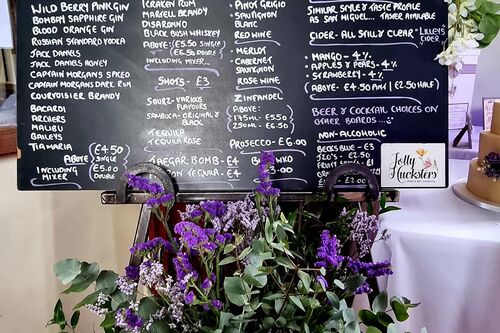 Wild Berry Pink Gin
Bombay Sapphire Gin
Blood Orange Gin
Russian Standard Vodka
Jack Daniels
Jack Daniels Honey
Captain Morgans Spiced
Captain Morgans Dark Rum
Courvoisier Brandy
Bacardi
Archers
Malibu
Baileys
Tia Maria
Above £4.50 single
Including mixer £5.00 double
Kraken Rum
Martell Brandy
Disaronno
Black Bush Whiskey
Above: £5.50 single
Including mixer...
Shots - £3
Sourz - Various flavours
Sambuca - Original & Black
Tequila
Tequila Rose
Jaegar Bomb - £4
Tequila - £4
Pinot Grigio
Sauvignon Blanc
Red Wine
- Merlot
- Cabernet Sauvignon
- Rose Wine
Zinfandel
Above:
175ml - £5.50
250ml - £6.50
Prosecco - £6.00
Similar style & taste profile
as San Miguel... Tamer available
Cider - All still & clear - Lilley's Cider
- Mango - 4%
- Apples & Pears - 4%
- Strawberry - 4%
(Above - £4.50 any / £2.50 half)
Beer & Cocktail choices on
other boards...
Non-Alcoholic
Becks Blue - £3
J2O's - £2.50
£2.00
Jolly
Hucksters